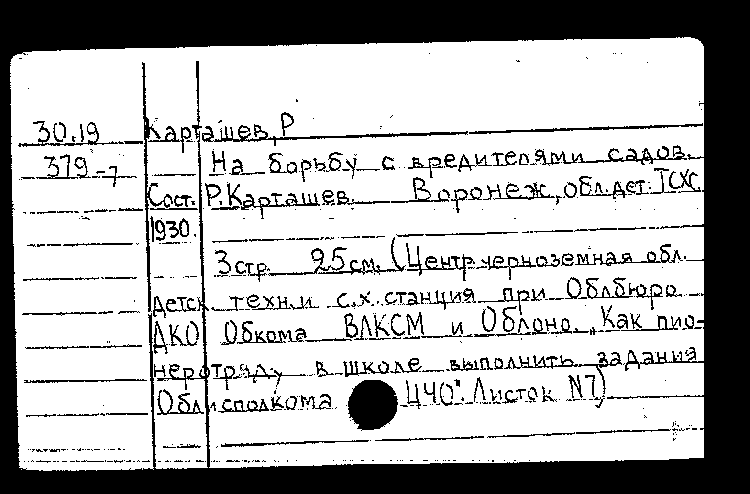 30.19 Карташев, Р
379-7 На борьбу с вредителями садов.
Сост. Р. Карташев. Воронеж, обл. дет. ТСХС.
1930.
3 стр. 25 см. (Центр. черноземная обл.
детск. техн. и с.х. станция при Облбюро
ДКО Обкома ВЛКСМ и Облоно. „Как пио-
неротряду в школе выполнить задания
Облисполкома ЦЧО". Листок N7)